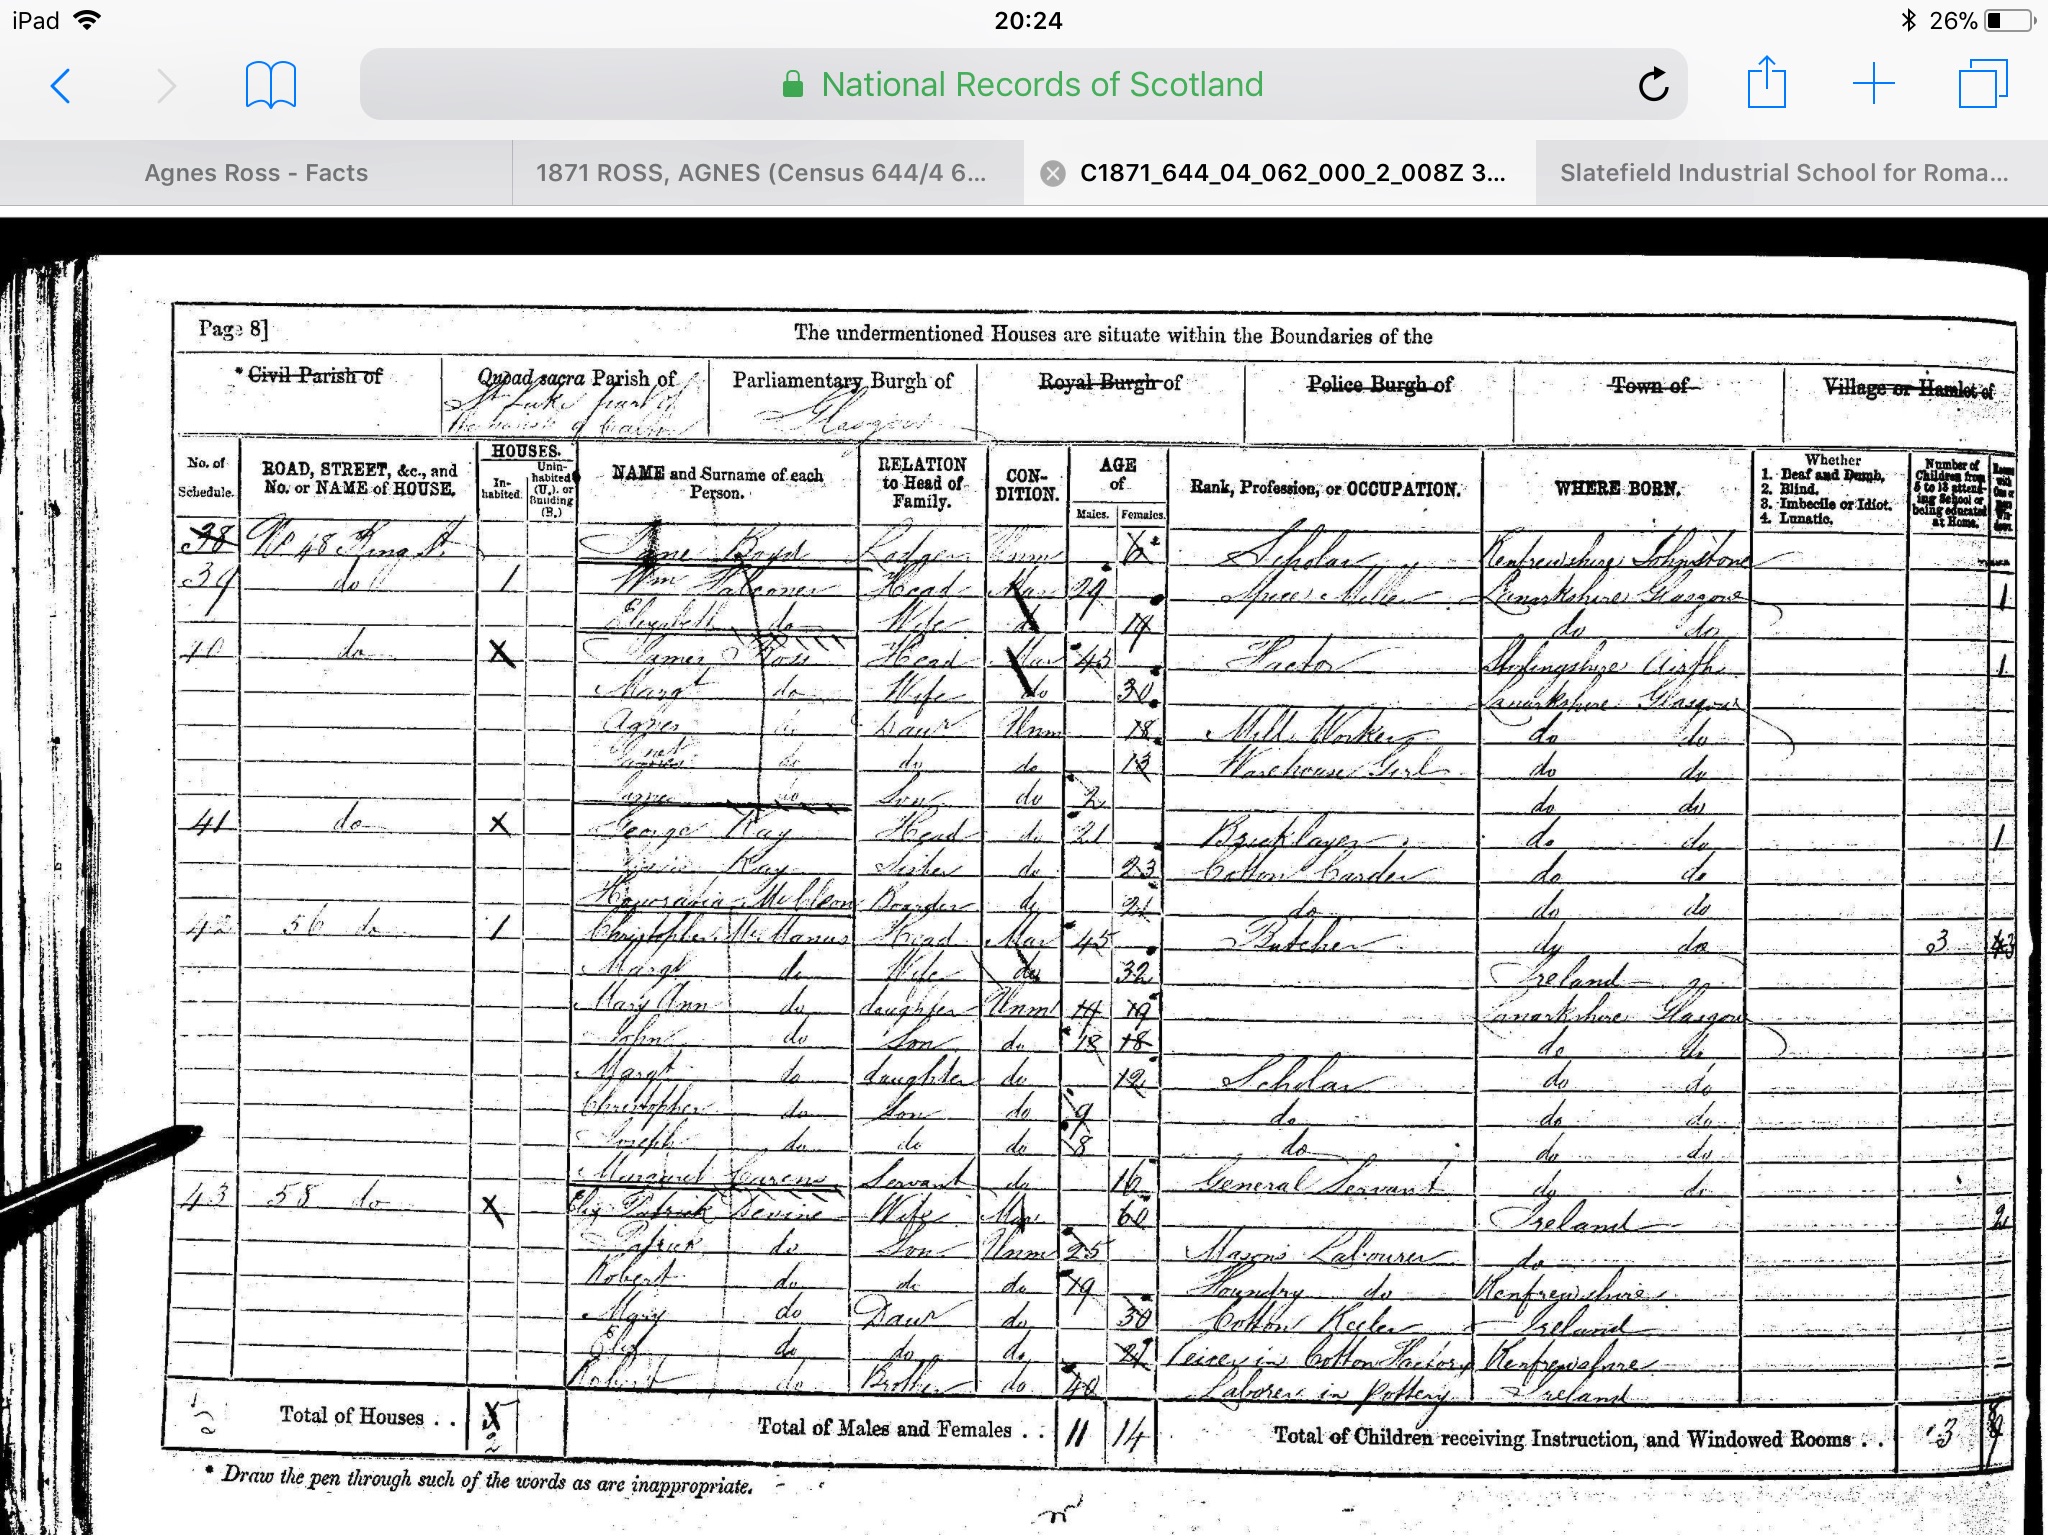 iPad 20:24 26%
National Records of Scotland
Agnes Ross - Facts 1871 ROSS, AGNES (Census 644/4 6... C1871_644_04_062_000_2_008Z 3... Slatefield Industrial School for Roma...
Page 8] The undermentioned Houses are situate within the Boundaries of the
* Civil Parish of Quoad sacra Parish of Parliamentary Burgh of Royal Burgh of Police Burgh of Town of Village or Hamlet of
St Luke part of Glasgow
No. of Schedule. ROAD, STREET, &c., and No. or NAME of HOUSE. HOUSES. Inhabited. Uninhabited (U.), or Building (B.) NAME and Surname of each Person. RELATION to Head of Family. CONDITION. AGE of Males. Females. Rank, Profession, or OCCUPATION. WHERE BORN. Whether 1. Deaf and Dumb. 2. Blind. 3. Imbecile or Idiot. 4. Lunatic. Number of Children from 5 to 13 attending School or being educated at Home.
38 No 48 King St. Jane Boyd Lodger Unm 6 Scholar Renfrewshire Johnstone
39 do 1 Wm Falconer Head Mar 29 Spice Miller Lanarkshire Glasgow 1
Elizabeth do Wife do 19 do do
40 do X James Ross Head Mar 43 Factor Stirlingshire Airth 1
Margt do Wife do 30 Lanarkshire Glasgow
Agnes do Daur Unm 18 Mill Worker do do
do do do 13 Warehouse Girl do do
do Son do 2 do do
41 do X George Kay Head do 21 Bricklayer do do 1
Kay Sister do 23 Cotton Carder do do
Boarder do 21 do do do
42 56 do 1 Christopher McManus Head Mar 45 Butcher do do 3
Margt do Wife do 32 Ireland
Mary Ann do daughter Unm 19 19 Lanarkshire Glasgow
John do Son do 18 18 do do
Margt do daughter do 12 Scholar do do
Christopher do Son do 9 do do do
Joseph do do do 8 do do do
Margaret Servant do 16 General Servant do do
43 58 do X Eliz Patrick Devine Wife Mar 60 Ireland 2
Patrick do Son Unm 25 Masons Labourer do
Robert do do do 19 Foundry do Renfrewshire
Mary do Daur do 30 Cotton Reeler Ireland
Eliz do do do 21 Peicer in Cotton Factory Renfrewshire
Robert do Brother do 40 Laborer in Pottery Ireland
Total of Houses . . Total of Males and Females . . 11 14 Total of Children receiving Instruction, and Windowed Rooms . . 3
* Draw the pen through such of the words as are inappropriate.